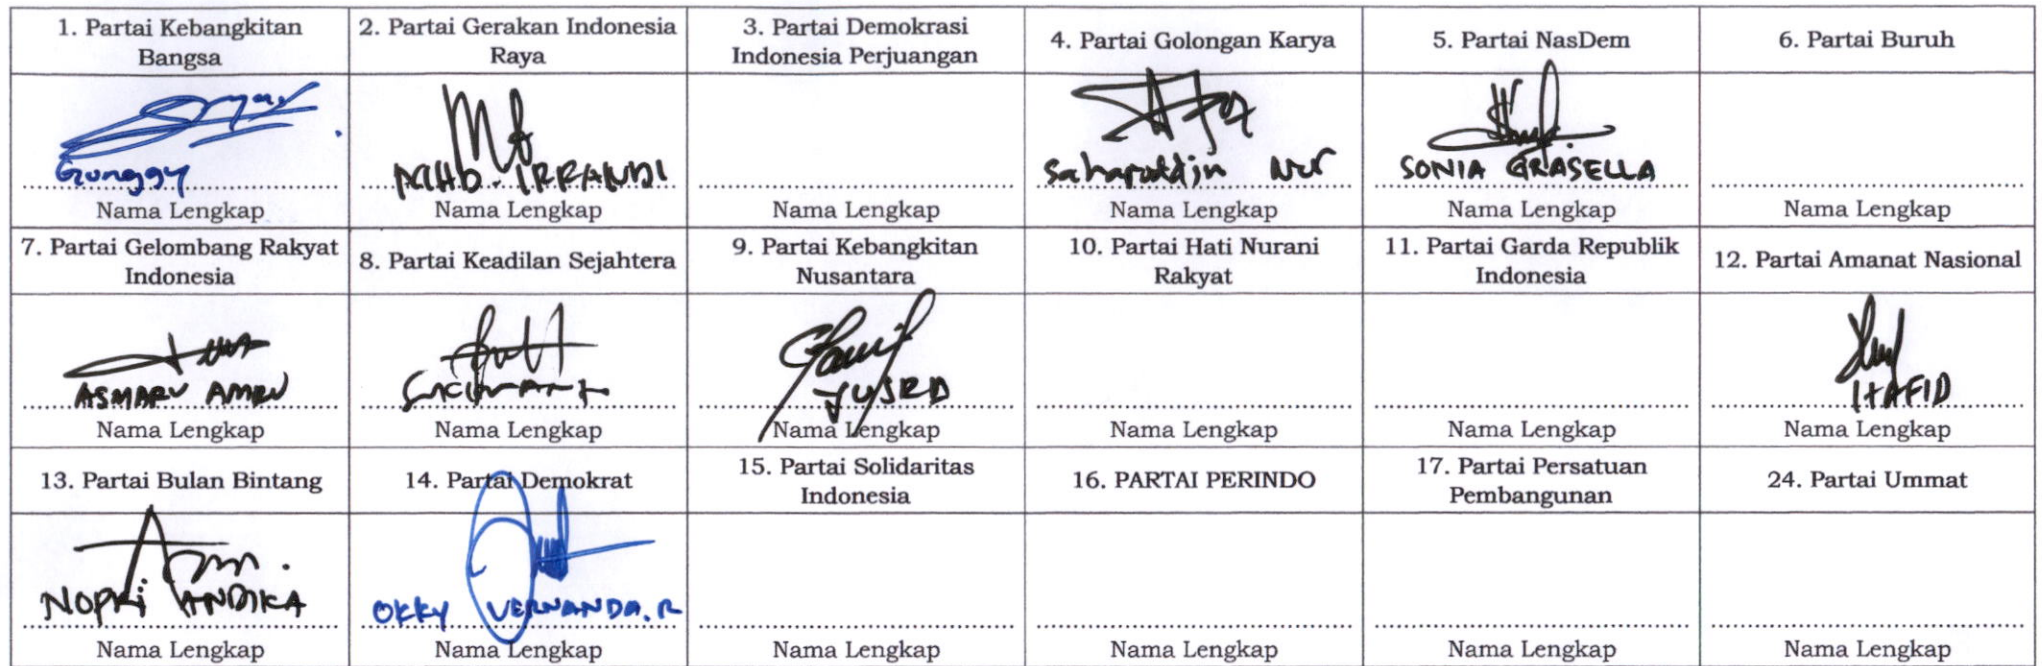 1. Partai Kebangkitan
Bangsa
2. Partai Gerakan Indonesia
Raya
3. Partai Demokrasi
Indonesia Perjuangan
4. Partai Golongan Karya
5. Partai NasDem
6. Partai Buruh
Gunggy
MHD. IRRANDI
Saharuddin Nur
SONIA GRASELLA
Nama Lengkap
Nama Lengkap
Nama Lengkap
Nama Lengkap
Nama Lengkap
Nama Lengkap
7. Partai Gelombang Rakyat
Indonesia
8. Partai Keadilan Sejahtera
9. Partai Kebangkitan
Nusantara
10. Partai Hati Nurani
Rakyat
11. Partai Garda Republik
Indonesia
12. Partai Amanat Nasional
ASMARU AMRU
YUSRD
HAFID
Nama Lengkap
Nama Lengkap
Nama Lengkap
Nama Lengkap
Nama Lengkap
Nama Lengkap
13. Partai Bulan Bintang
14. Partai Demokrat
15. Partai Solidaritas
Indonesia
16. PARTAI PERINDO
17. Partai Persatuan
Pembangunan
24. Partai Ummat
NOPRI ANDIKA
OKKY VERNANDA.R
Nama Lengkap
Nama Lengkap
Nama Lengkap
Nama Lengkap
Nama Lengkap
Nama Lengkap